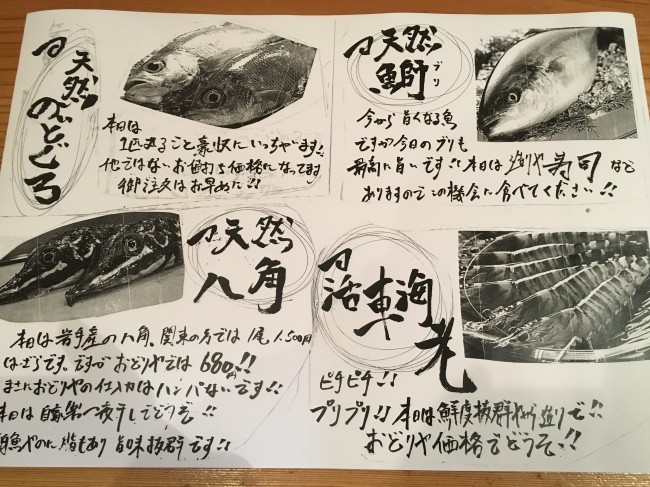 天然
のどぐろ
本日は
1匹丸ごと豪快にいっちゃいます!!
他ではないお値打ち価格になってます
御注文はお早めに!!
天然
鰤
ブリ
今から旨くなる魚
ですが今日のブリも
最高に旨いです!! 本日は造りや寿司など
ありますのでこの機会に食べてください!!
天然
八角
本日は岩手産の八角。関東の方では1尾1,500円
はざらです。ですがおどりやでは680円!!
まさにおどりやの仕入力はハンパないです!!
本日は自家製一夜干しでどうぞ!!
白魚やのに脂もあり旨味抜群です!!
活車海老
ピチピチ!!
プリプリ!! 本日は鮮度抜群やから造りで!!
おどりや価格でどうぞ!!